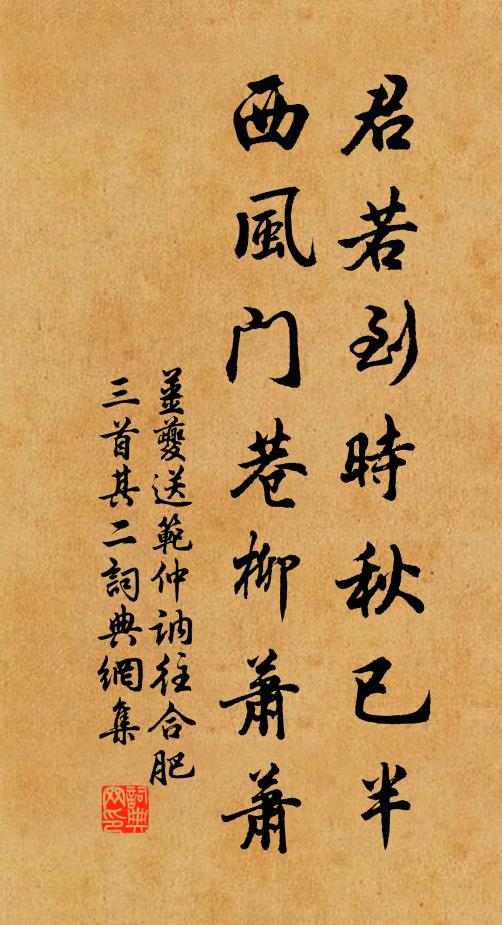 君若到時秋已半
西風门巷柳蕭蕭
薑夔送範仲訥往合肥
三首其二詞典網集
詞典
网印